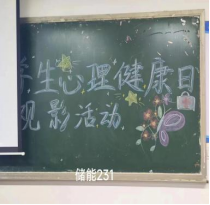 学生心理健康日
观影活动
储能231